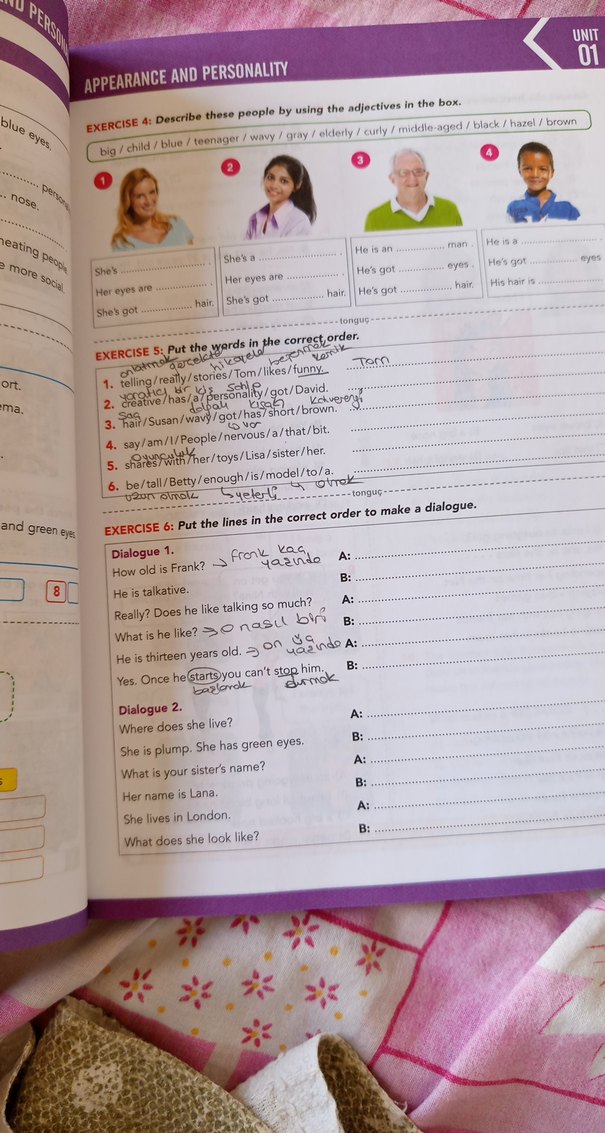 ND PERSON
UNIT
01
APPEARANCE AND PERSONALITY
blue eyes.
nose.
ort.
ema.
and green eyes
8
EXERCISE 4: Describe these people by using the adjectives in the box.
big / child / blue / teenager / wavy / gray / elderly / curly / middle-aged / black / hazel / brown
1
2
3
4
She's .................... .
Her eyes are .................... .
She's got .................... hair.
She's a .................... .
Her eyes are .................... .
She's got .................... hair.
He is an .................... man .
He's got .................... eyes .
He's got .................... hair.
He is a .................... .
He's got .................... eyes
His hair is ....................
tonguç
EXERCISE 5: Put the words in the correct order.
anlatmak gerçekte hikayele beğenmek komik
1. telling/really/stories/Tom/likes/funny.
Tom
yaratıcı bir kiş
2. creative/has/a/personality/got/David.
saç dalgalı kısa kahverengi
3. hair/Susan/wavy/got/has/short/brown.
4. say/am/I/People/nervous/a/that/bit.
oyuncak
5. shares/with/her/toys/Lisa/sister/her.
6. be/tall/Betty/enough/is/model/to/a.
uzun olmak yeterli olmak
tonguç
EXERCISE 6: Put the lines in the correct order to make a dialogue.
Dialogue 1.
How old is Frank? → frank kaç yaşında
He is talkative.
Really? Does he like talking so much?
What is he like? → o nasıl biri
He is thirteen years old. → on üç yaşında
Yes. Once he starts you can't stop him.
başlamak durmak
A: ....................
B: ....................
A: ....................
B: ....................
A: ....................
B: ....................
Dialogue 2.
Where does she live?
She is plump. She has green eyes.
What is your sister's name?
Her name is Lana.
She lives in London.
What does she look like?
A: ....................
B: ....................
A: ....................
B: ....................
A: ....................
B: ....................